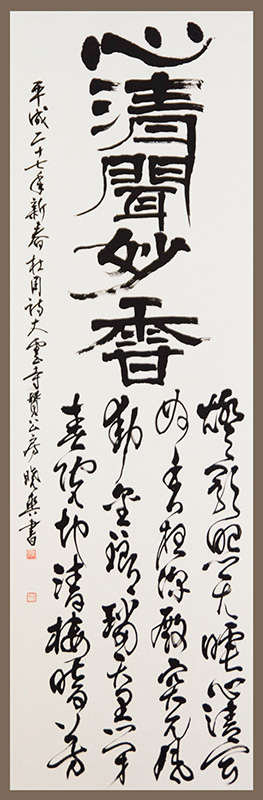 心清聞妙香
燈影照无睡心清聞
妙香夜深殿突兀風
動金琅璫天黑閉
春院地清棲暗芳
平成二十七年新春杜甫詩大雲寺賛公房 書